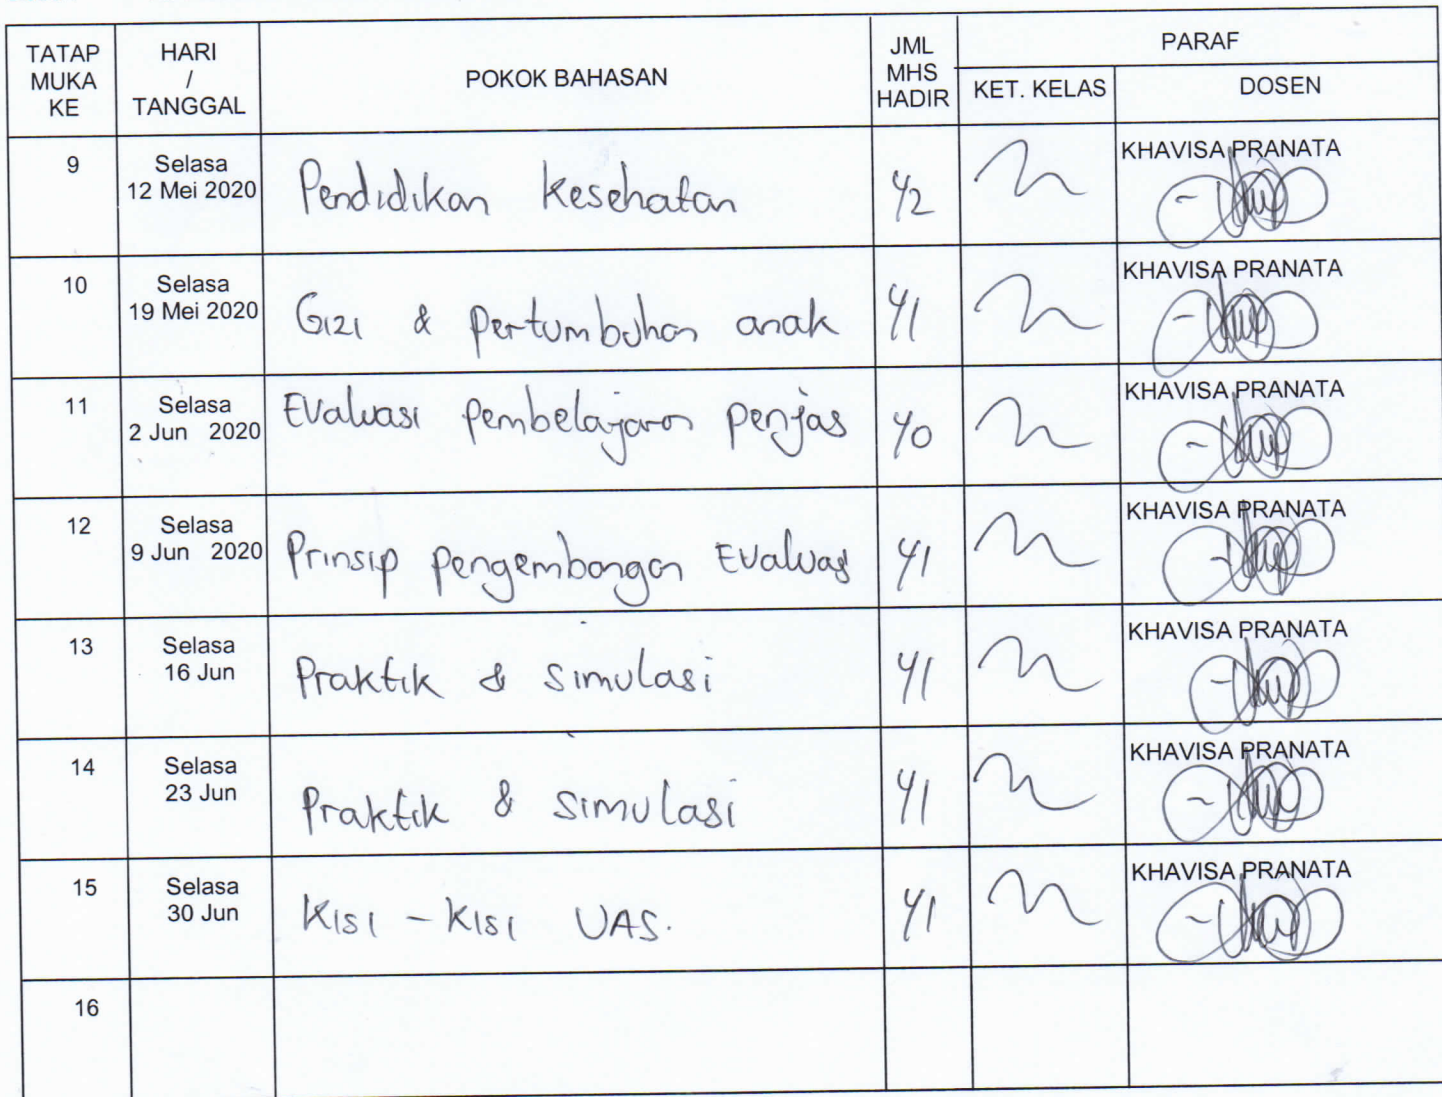 TATAP MUKA KE | HARI / TANGGAL | POKOK BAHASAN | JML MHS HADIR | PARAF
KET. KELAS | DOSEN
9 | Selasa 12 Mei 2020 | Pendidikan Kesehatan | 42 | KHAVISA PRANATA
10 | Selasa 19 Mei 2020 | Gizi & pertumbuhan anak | 41 | KHAVISA PRANATA
11 | Selasa 2 Jun 2020 | Evaluasi pembelajaran penjas | 40 | KHAVISA PRANATA
12 | Selasa 9 Jun 2020 | Prinsip pengembangan Evaluasi | 41 | KHAVISA PRANATA
13 | Selasa 16 Jun | Praktik & simulasi | 41 | KHAVISA PRANATA
14 | Selasa 23 Jun | Praktik & simulasi | 41 | KHAVISA PRANATA
15 | Selasa 30 Jun | Kisi - Kisi UAS. | 41 | KHAVISA PRANATA
16